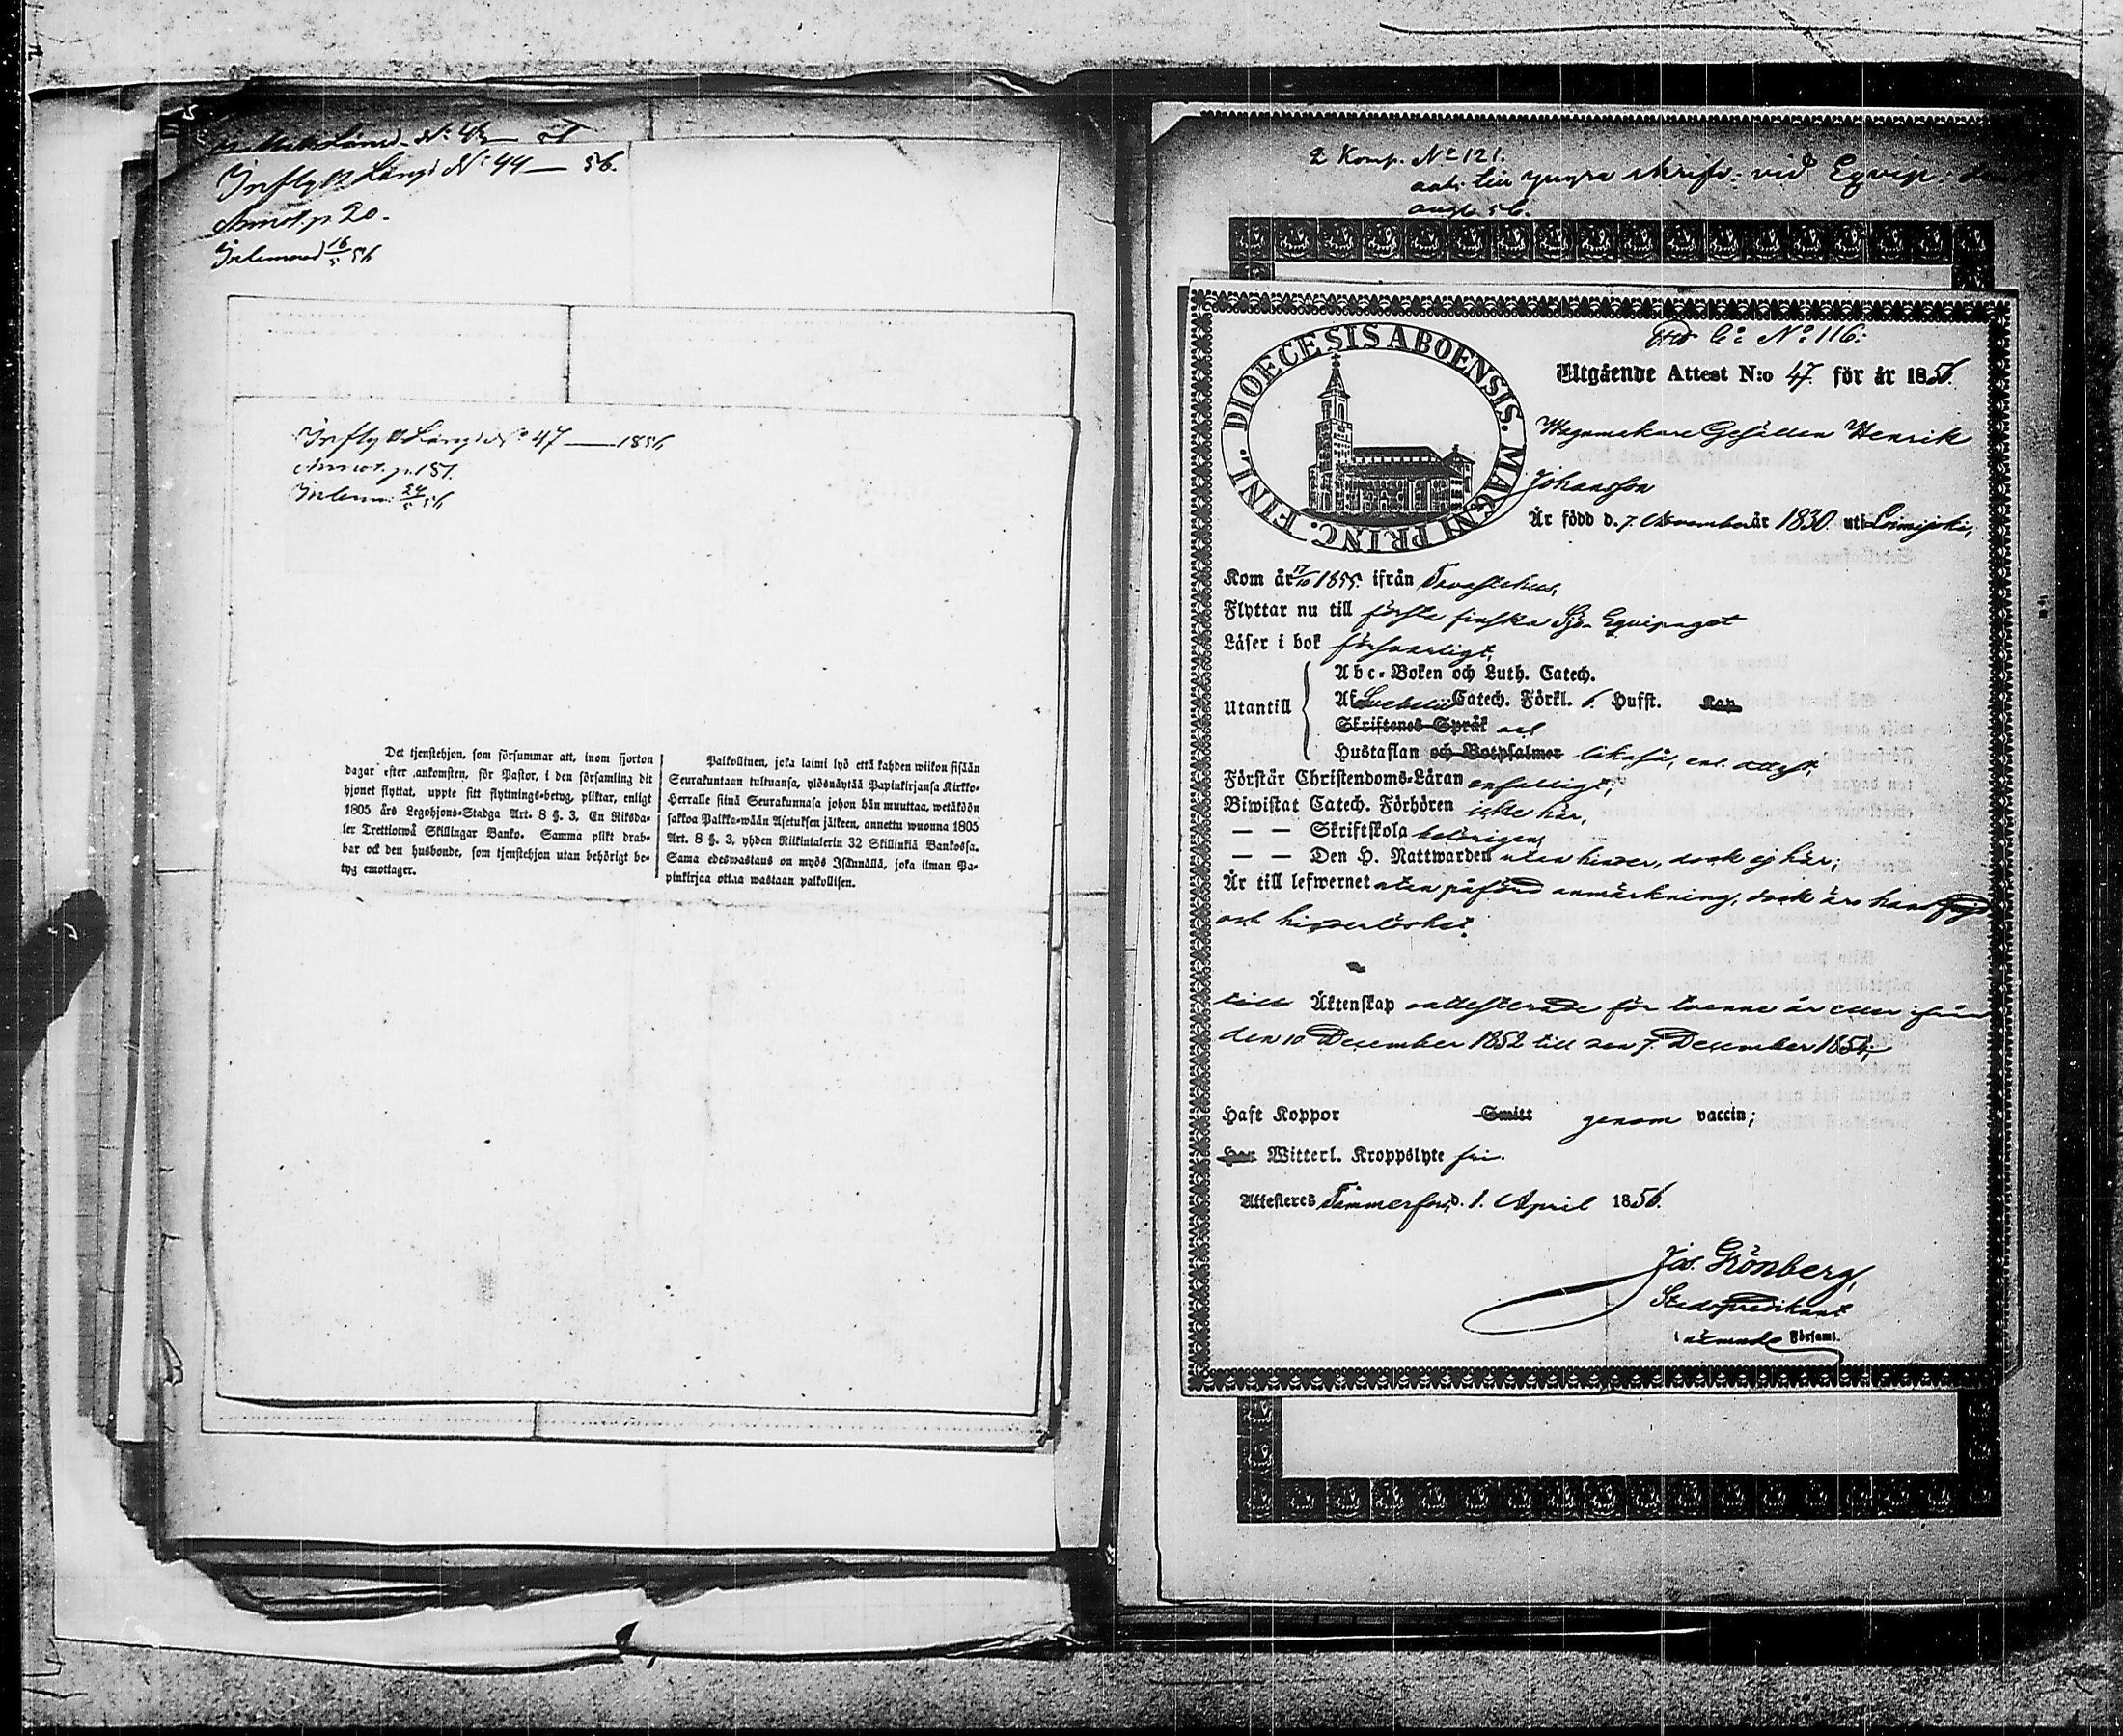 Inflyttn Längd No 44 — 56.
Annot. p 20.
Inlemnad 16/5 56
Inflyttn Längd No 47 — 1856
Annot. p. 157.
Inlemn. 24/5 56
Det tjenstehjon, som försummar att, inom fjorton
dagar efter ankomsten, för Pastor, i den församling dit
hjonet flyttat, uppte sitt flyttnings-betyg, pliktar, enligt
1805 års Legohjons-Stadga Art. 8 §. 3, En Riksda-
ler Trettiotwå Skillingar Banko. Samma plikt drab-
bar ock den husbonde, som tjenstehjon utan behörigt be-
tyg emottager.
Palkollinen, joka laimi lyö että kahden wiikon sisään
Seurakuntaan tultuansa, ylösnäytää Papinkirjansa Kirkko-
Herralle siinä Seurakunnasa johon hän muuttaa, wetäköön
sakkoa Palkka-wään Asetuksen jälkeen, annettu wuonna 1805
Art. 8 §. 3, yhden Riikintalerin 32 Skillinkiä Bankossa.
Sama edeswastaus on myös Isännällä, joka ilman Pa-
pinkirjaa ottaa wastaan palkollisen.
2 Komp. No 121.
yngre skrifv: vid Eqvip:
No 116:
Utgående Attest N:o 47 för år 1856.
DIOECESIS ABOENSIS. MAGNI PRINC. FINL.
Wagnmakare Gesällen Henrik
Johansson
Är född d. 7. November år 1830. uti Loimijoki,
Kom år 17/10 1855. ifrån Tavastehus,
Flyttar nu till första finska Sjö-Equipaget
Läser i bok försvarligt,
Utantill
Abc-Boken och Luth. Catech.
Af Svebelii Catech. Förkl. 6. Hufst. Kap
Skriftenes Språk och
Hustaflan och Botpsalmer likaså, enl. attest,
Förstår Christendoms-Läran enfaldigt;
Biwistat Catech. Förhören icke här,
— — Skriftskola behörigen,
— — Den H. Nattwarden utan hinder, dock ej här;
Är till lefwernet utan påförd anmärkning, dock är hans frejd
och hinderlöshet
till Äktenskap oattesterade för tvenne år eller ifrån
den 10 December 1852 till den 7. December 1854;
Haft Koppor Smitt genom vaccin;
Har Witterl. Kroppslyte fri.
Attesteres Tammerfors, d. 1. April 1856.
Jos. Grönberg,
Stadspredikant
i nämnde Församl.